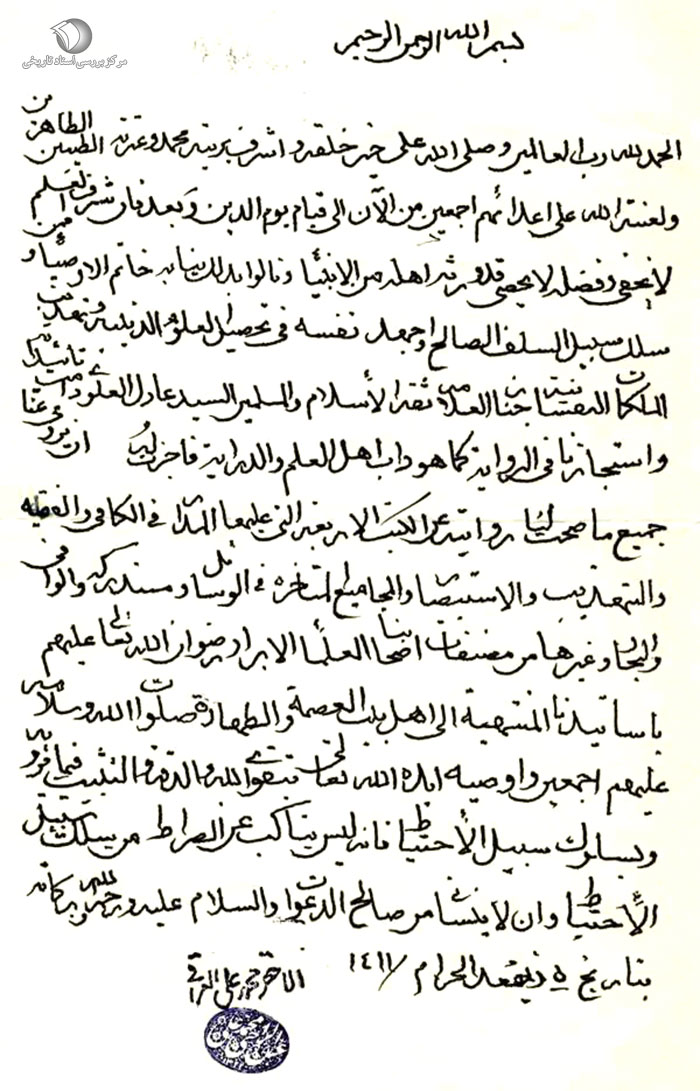 مرکز بررسی اسناد تاریخی
بسم الله الرحمن الرحيم
الحمد لله رب العالمين وصلى الله على خير خلقه واشرف بريته محمد وعترته الطيبين الطاهرين
ولعنة الله على اعدائهم اجمعين من الآن الى قيام يوم الدين وبعد فان شرف العلم
لا يخفى وفضله لا يحصى قد ورثه اهله من الانبياء ونالوا بذلك نيابة خاتم الاوصياء و ممن
سلك سبيل السلف الصالح واجهد نفسه في تحصيل العلوم الدينية وتهذيب
الملكات النفسانية جناب العلامة ثقة الأسلام والمسلمين السيد عادل العلوي دامت تائيداته
واستجازنا في الرواية كما هو داب اهل العلم والدراية فاجزت له ان يروي عنا
جميع ما صحت لنا روايته عن الكتب الاربعة التي عليها المدار في الكافي والفقيه
والتهذيب والاستبصار والمجاميع المتاخرة في الوسائل ومستدركه والوافي
والبحار وغيرها من مصنفات اصحابنا العلماء الابرار رضوان الله تعالى عليهم
باسانيدنا المنتهية الى اهل بيت العصمة والطهارة صلوات الله وسلامه
عليهم اجمعين واوصيه ايده الله تعالى بتقوى الله والدقة والتثبت فيما يرويه
وبسلوك سبيل الأحتياط فانه ليس بناكب عن الصراط من يسلك سبيل
الأحتياط وان لا ينساني من صالح الدعوات والسلام عليه ورحمة الله وبركاته
بتاريخ ٥ ذيقعدة الحرام ١٤١١
الاحقر محمد علي العراقي